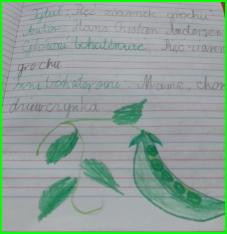 Tytuł: "Pięć ziarenek grochu"
Autor: Hans Christian Andersen
Główni bohaterowie: Pięć ziaren
grochu
Inni bohaterowie: Mama, chora
dziewczynka